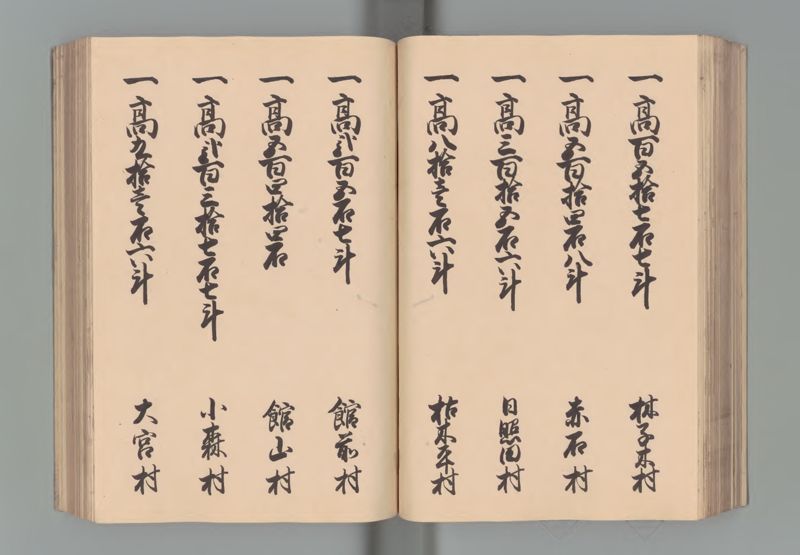 一高百五拾七石七斗 林子木村
一高五百拾四石八斗 赤石村
一高三百拾五石六斗 日照田村
一高八拾壱石六斗 枯木平村
一高弐百五石七斗 館前村
一高五百四拾四石 館山村
一高弐百三拾七石七斗 小森村
一高九拾壱石六斗 大宮村